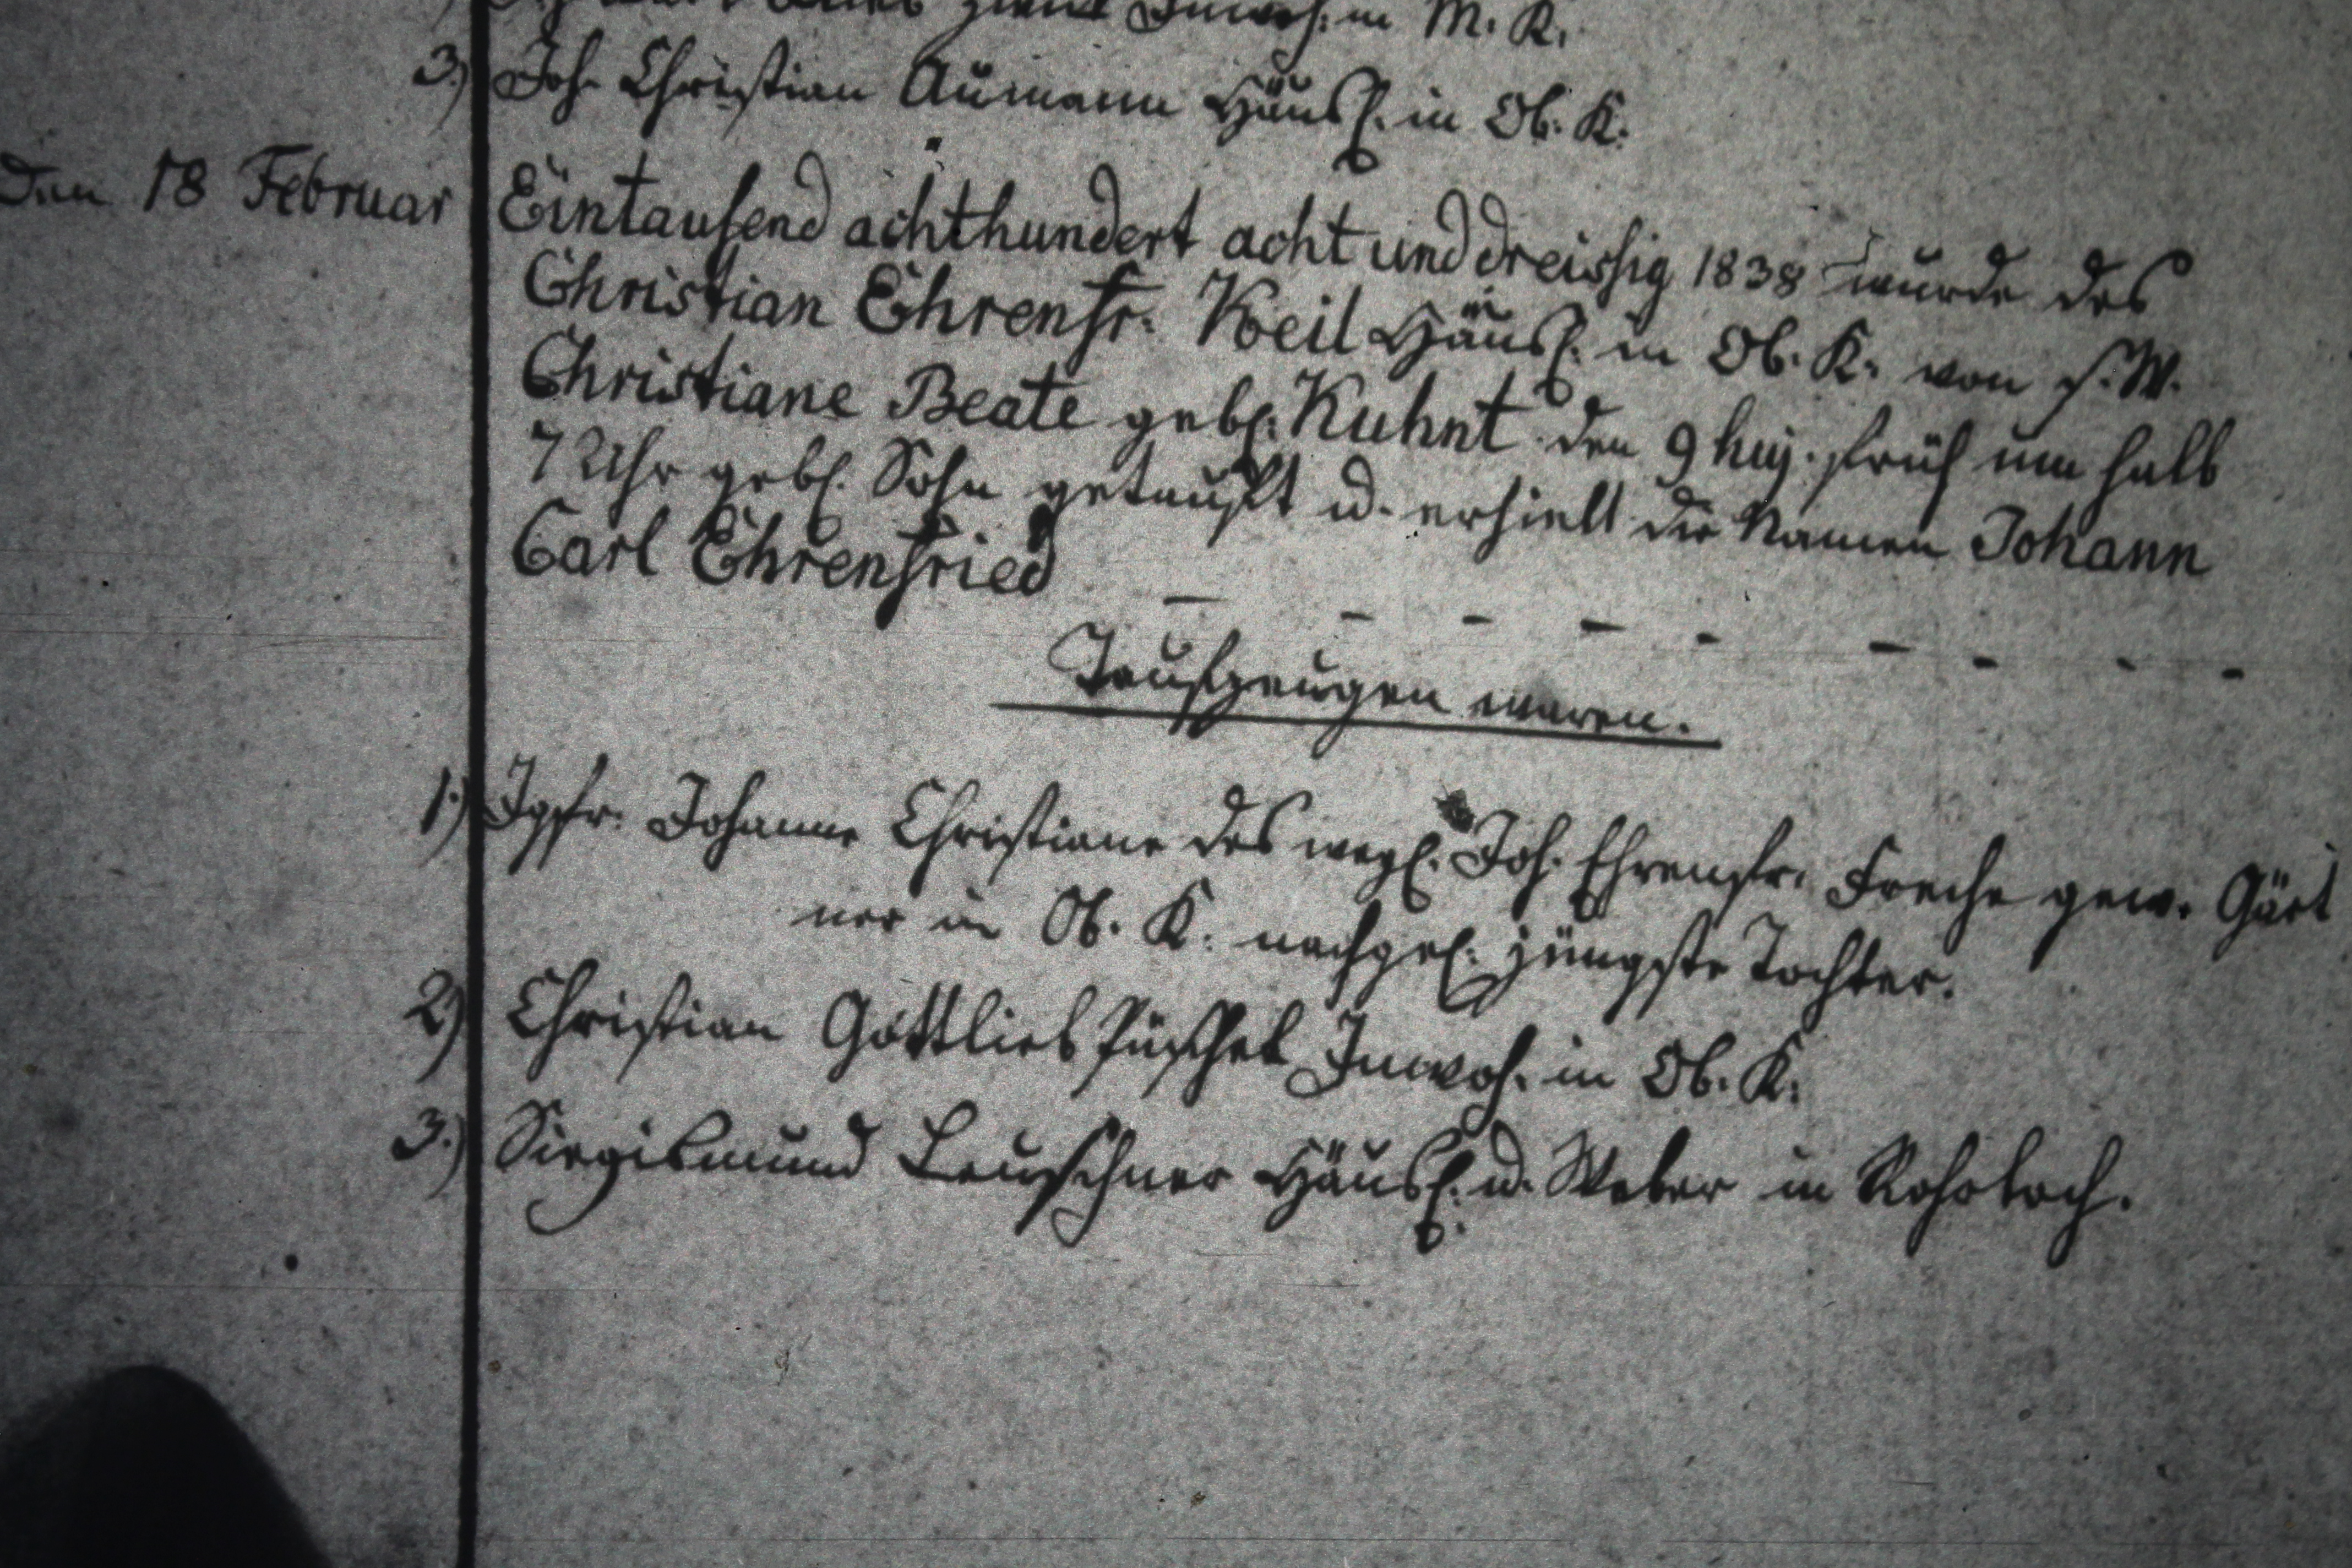 in M. K.
3.) Joh. Christian Aumann Häusl. in Ob. K.
Den 18 Februar Eintausend achthundert acht und dreissig 1838 wurde des
Christian Ehrenfr: Keil Häusl. in Ob. K. von s. W.
Christiane Beate gebl: Kuhnt den 9 huj. früh um halb
7 Uhr gebl. Sohn getauft u. erhielt die Namen Johann
Carl Ehrenfried
Taufzeugen waren.
1.) Jgfr. Johanne Christiane des wegl. Joh. Ehrenfr. Freche gew. Gärt
ner in Ob. K. nachgel: jüngste Tochter.
2) Christian Gottlieb Püschel Inwoh. in Ob. K.
3.) Siegismund Leuschner Häusl. u. Weber in Rohrlach.